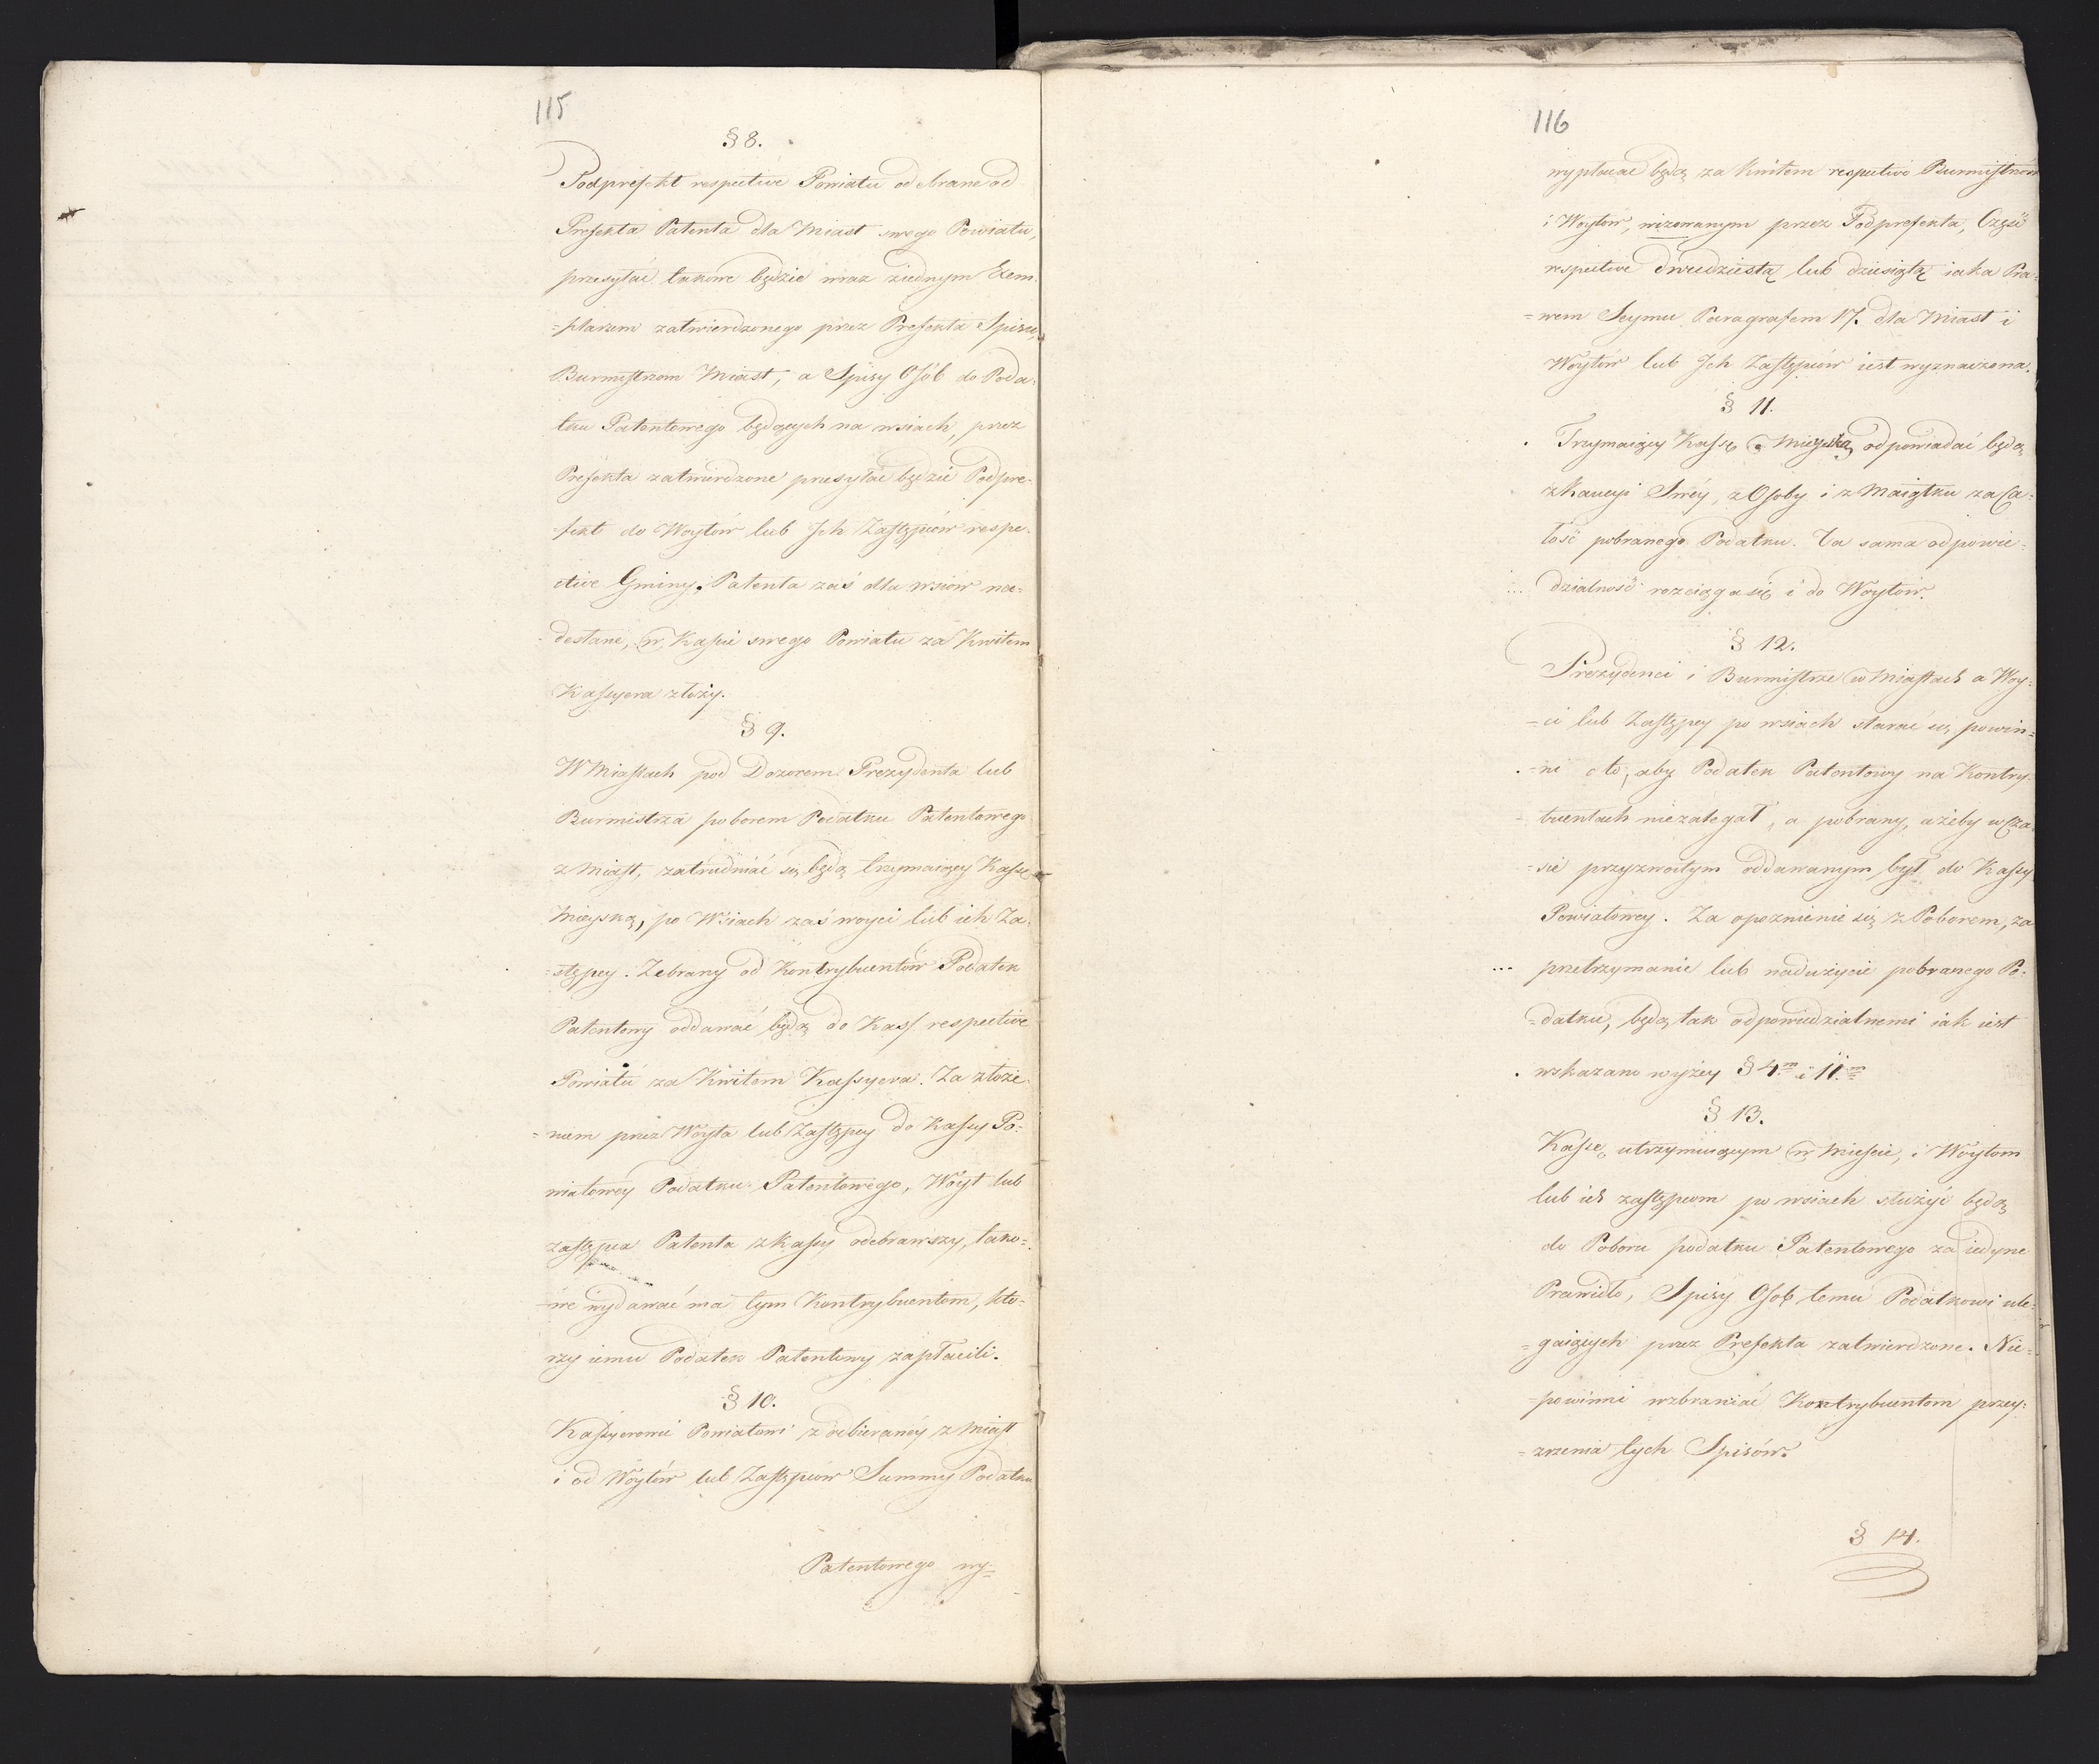 115
§ 8.
Podprefekt respective Powiatu odebrane od
Prefekta Patenta dla Miast swego Powiatu,
przesyłać takowe będzie wraz ziednym Exem=
=plarzem zatwierdzonego przez Prefekta Spisu,
Burmistrzom Miast, a Spisy Osób do Poda=
tku Patentowego będących na wsiach, przez
Prefekta zatwierdzone przesyłać będzie Podpre=
fekt do Woytów lub Ich Zastępców respe=
ctive Gminy. Patenta zaś dla wsiów na=
desłane, w Kassie swego Powiatu za Kwitem
Kassyera złoży.
§ 9.
W Miastach pod Dozorem Prezydenta lub
Burmistrza poborem Podatku Patentowego
z Miast, zatrudniać się będą trzymaiący Kassę
Mieyską, po Wsiach zaś woyci lub ich Za=
=stępcy. Zebrany od Kontrybuentów Podatek
Patentowy oddawać będą do Kass respective
Powiatu za Kwitem Kassyera. Za złoże=
=niem przez Woyta lub Zastępcy do Kassy Po=
wiatowéy Podatku Patentowego, Woyt lub
zastępca Patenta z Kassy odebrawszy, tako=
=we wydawać ma tym Kontrybuentom, któ=
rzy iemu Podatek Patentowy zapłacili.
§ 10.
Kassyerowie Powiatowi z odbieranéy z Miast
i od Woytów lub Zastępców Summy Podatku
Patentowego wy=
116
wypłacać będą za Kwitem respective Burmistrzów
i Woytów, wizowanym przez Podprefekta, Część
respective dwudziestą lub dziesiątą iaka Pra=
=wem Seymu Paragrafem 17. dla Miast i
Woytów lub Ich Zastępców iest wyznaczona.
§ 11.
Trzymaiący Kassę Mieyską odpowiadać będą
z Kaucyi Swéy, z Osoby i z Maiątku za Ca=
łość pobranego Podatku. Ta sama odpowie=
dzialność rozciąga się i do Woytów.
§ 12.
Prezydenci i Burmistrze w Miastach a Woy=
=ci lub Zastępcy po wsiach starać się powin=
=ni o to, aby Podatek Patentowy na Kontry=
buentach niezaległ, a pobrany, ażeby w Cza=
=sie przyzwoitym oddawanym był do Kassy
Powiatowey. Za opoznienie się z Poborem, za
przetrzymanie lub nadużycie pobranego Po=
=datku, będą tak odpowiedzialnemi iak iest
wskazano wyżey § 4.m i 11.m
§ 13.
Kassę utrzymuiącym w Mieście, i Woytom
lub ich zastępcom po wsiach służyć będą
do Poboru podatku Patentowego za iedyne
Prawidło, Spisy Osób temu Podatkowi ule=
=gaiących przez Prefekta zatwierdzone. Nie=
=powinni wzbraniać Kontrybuentom przey=
=zrzenia tych Spisów.
§ 14.